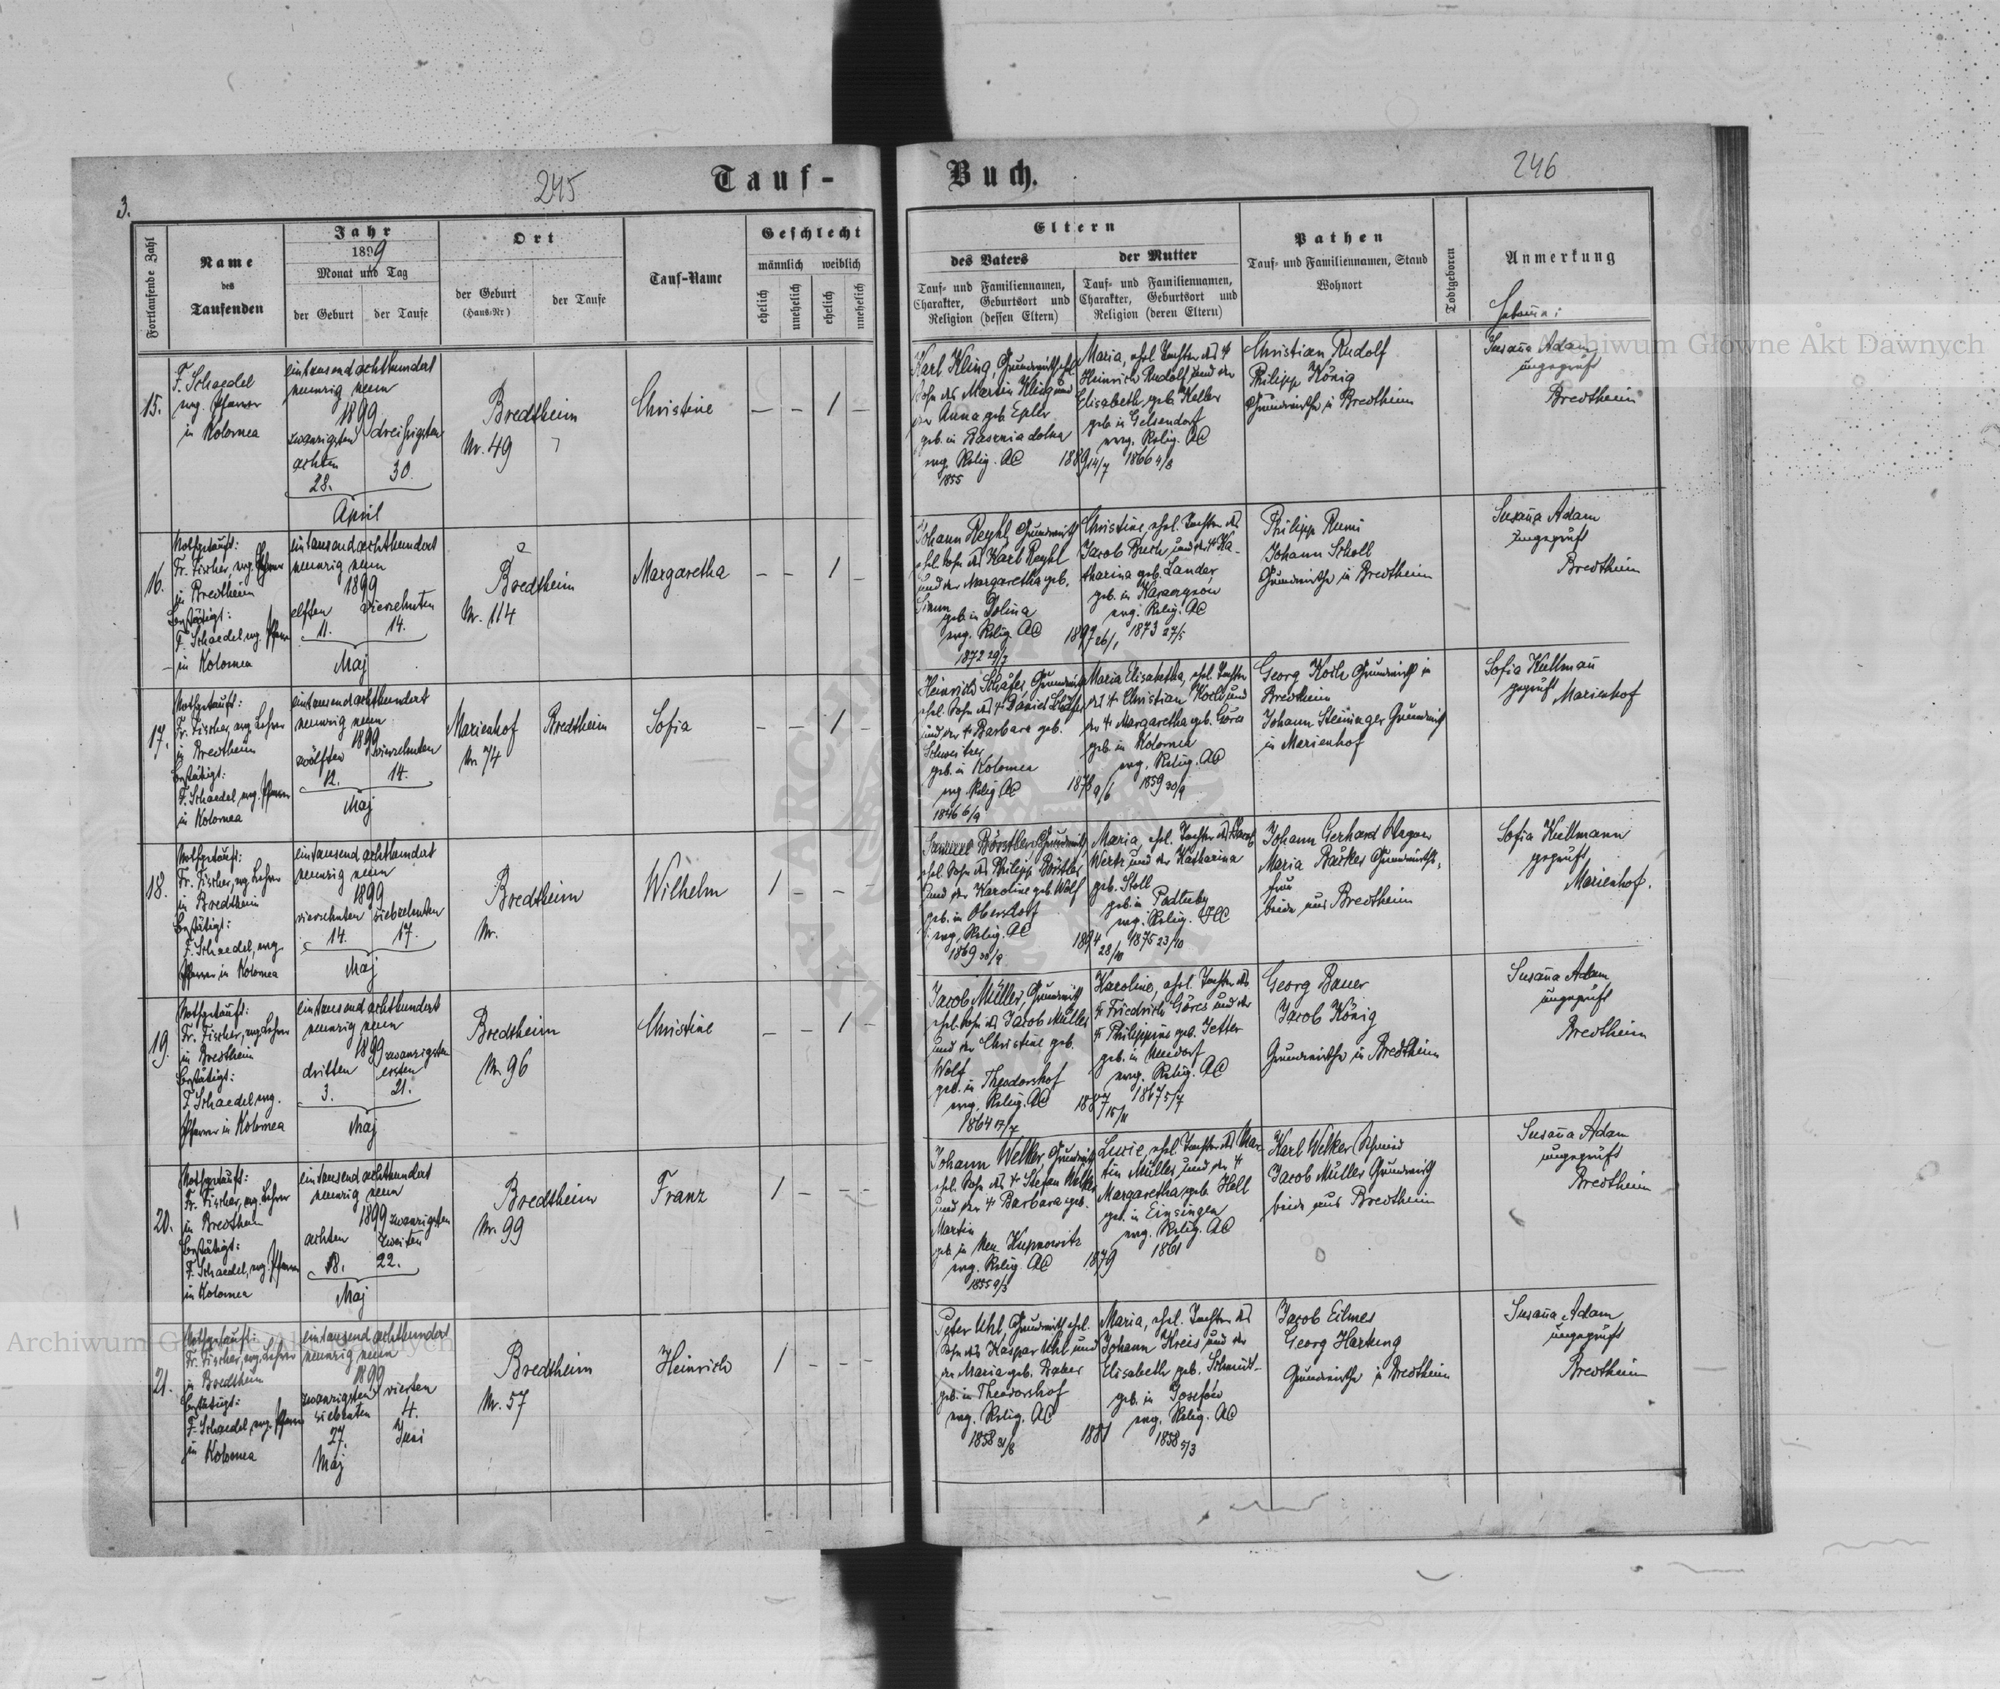 245
Tauf-
3.
Fortlaufende Zahl
Name
des
Taufenden
Jahr
1899
Monat und Tag
der Geburt
der Taufe
Ort
der Geburt
(Haus-Nr)
der Taufe
Tauf-Name
Geschlecht
männlich
weiblich
ehelich
unehelich
ehelich
unehelich
15.
F. Schaedel
evg. Pfarrer
in Kolomea
eintausend achthundert
neunzig neun
1899
zwanzigsten
achten
28.
dreißigsten
30.
April
Bredtheim
Nr. 49
Christine
— — 1 —
16.
Nothgetauft:
Fr. Fischer, evg.
in Bredtheim
bestätigt:
F. Schaedel, evg. Pfarrer
in Kolomea
eintausend achthundert
neunzig neun
1899
elften
11.
vierzehnten
14.
Maj
Bredtheim
Nr. 114
Margaretha
— — 1 —
17.
Nothgetauft:
Fr. Fischer, evg. Lehrer
in Bredtheim
bestätigt:
F. Schaedel, evg. Pfarrer
in Kolomea
eintausend achthundert
neunzig neun
1899
zwölften
12.
vierzehnten
14.
Maj
Marienhof
Nr. 74
Bredtheim
Sofia
— — 1 —
18.
Nothgetauft:
Fr. Fischer, evg. Lehrer
in Bredtheim
bestätigt:
F. Schaedel, evg.
Pfarrer in Kolomea
eintausend achthundert
neunzig neun
1899
vierzehnten
14.
siebzehnten
17.
Maj
Bredtheim
Nr.
Wilhelm
1 — — —
19.
Nothgetauft:
Fr. Fischer, evg. Lehrer
in Bredtheim
bestätigt:
F. Schaedel evg.
Pfarrer in Kolomea
eintausend achthundert
neunzig neun
1899
dritten
3.
zwanzigsten
ersten
21.
Maj
Bredtheim
Nr. 96
Christine
— — 1 —
20.
Nothgetauft:
Fr. Fischer, evg. Lehrer
in Bredtheim
bestätigt:
F. Schaedel, evg. Pfarrer
in Kolomea
eintausend achthundert
neunzig neun
1899
achten
18.
zwanzigsten
zweiten
22.
Maj
Bredtheim
Nr. 99
Franz
1 — — —
21.
Nothgetauft:
Fr. Fischer, evg. Lehrer
in Bredtheim
bestätigt:
F. Schaedel, evg. Pfarrer
in Kolomea
eintausend achthundert
neunzig neun
1899
zwanzigsten
siebenten
27.
Maj
vierten
4.
Juni
Bredtheim
Nr. 57
Heinrich
1 — — —
Buch.
246
Eltern
des Vaters
der Mutter
Tauf- und Familiennamen,
Charakter, Geburtsort und
Religion (dessen Eltern)
Tauf- und Familiennamen,
Charakter, Geburtsort und
Religion (deren Eltern)
Pathen
Tauf- und Familiennamen, Stand
Wohnort
Todtgeboren
Anmerkung
Karl Kling, Grundwirth ehl.
Sohn des Martin Kling und
der Anna geb. Epler
geb. in Baginia dolna
evg. Relig. AC
1855
Maria, ehel. Tochter des †
Heinrich Rudolf und der
Elisabeth geb. Keller
geb. in Gelsendorf
evg. Relig. AC
1889 14/7 1866 4/8
Christian Rudolf
Philipp König
Grundwirthe in Bredtheim
Susaña Adam
ungeprüft
Bredtheim
Johann Reyhl, Grundwirth
ehl. Sohn des Karl Reyhl
und der Margaretha geb.
geb. in
evg. Relig. AC
1872 29/3
Christine, ehel. Tochter des
Jacob Busch und der † Ka-
tharina geb. Lander
geb. in
evg. Relig. AC
1897 26/1 1873 27/5
Philipp Rumi
Johann Scholl
Grundwirthe in Bredtheim
Susaña Adam
ungeprüft
Bredtheim
Heinrich Schäfer, Grundwirth
ehel. Sohn des † Daniel Schäfer
und der † Barbara geb.
Schweitzer
geb. in Kolomea
evg. Relig. AC
1846 6/9
Maria Elisabetha, ehel. Tochter
des † Christian Koch und
der † Margaretha geb. Göres
geb. in Kolomea
evg. Relig. AC
1878 9/6 1859 30/9
Georg Koch Grundwirth in
Bredtheim
Johann Steininger Grundwirth
in Marienhof
Sofia Kullmañ
geprüft
Marienhof
Börstler, Grundwirth
ehel. Sohn des Philipp Börstler
und der Karoline geb. Wolf
geb. in Oberstorf
evg. Relig. AC
Maria, ehel. Tochter des Jacob
Wertz und der Katharina
geb. Stoll
geb. in Podluby
evg. Relig. HC
1894 28/10 1875 23/10
Johann Gerhard Wagner
Maria Bäcker Grundwirths-
frau
beide aus Bredtheim
Sofia Kullmann
geprüft
Marienhof.
Jacob Müller, Grundwirth
ehel. Sohn des Jacob Müller
und der Christine geb.
Wolf
geb. in Theodorshof
evg. Relig. AC
1864 17/7
Karoline, ehel. Tochter des
† Friedrich Göres und der
† Philippine geb. Jetter
geb. in Neudorf
evg. Relig. AC
1887 15/11 1867 5/7
Georg Bauer
Jacob König
Grundwirthe in Bredtheim
Susaña Adam
ungeprüft
Bredtheim
Johann Welker Grundwirth
ehel. Sohn des † Stefan Welker
und der † Barbara geb.
Martin
geb. in Neu Kupnowitz
evg. Relig. AC
1855 9/3
Luise, ehel. Tochter des Mar-
tin Müller und der †
Margaretha geb. Holl
geb. in Einsingen
evg. Relig. AC
1879 1861
Karl Welker Schmied
Jacob Müller Grundwirth
beide aus Bredtheim
Susaña Adam
ungeprüft
Bredtheim
Peter Uhl, Grundwirth ehel.
Sohn des Kaspar Uhl und
der Maria geb.
geb. in Theodorshof
evg. Relig. AC
1858 31/8
Maria, ehel. Tochter des
Johann Kreis und der
Elisabeth geb. Schmidt
geb. in Josefów
evg. Relig. AC
1881 1858 5/3
Jacob Eilmes
Georg Hartung
Grundwirthe in Bredtheim
Susaña Adam
ungeprüft
Bredtheim
Archiwum Główne Akt Dawnych
Archiwum Główne Akt Dawnych